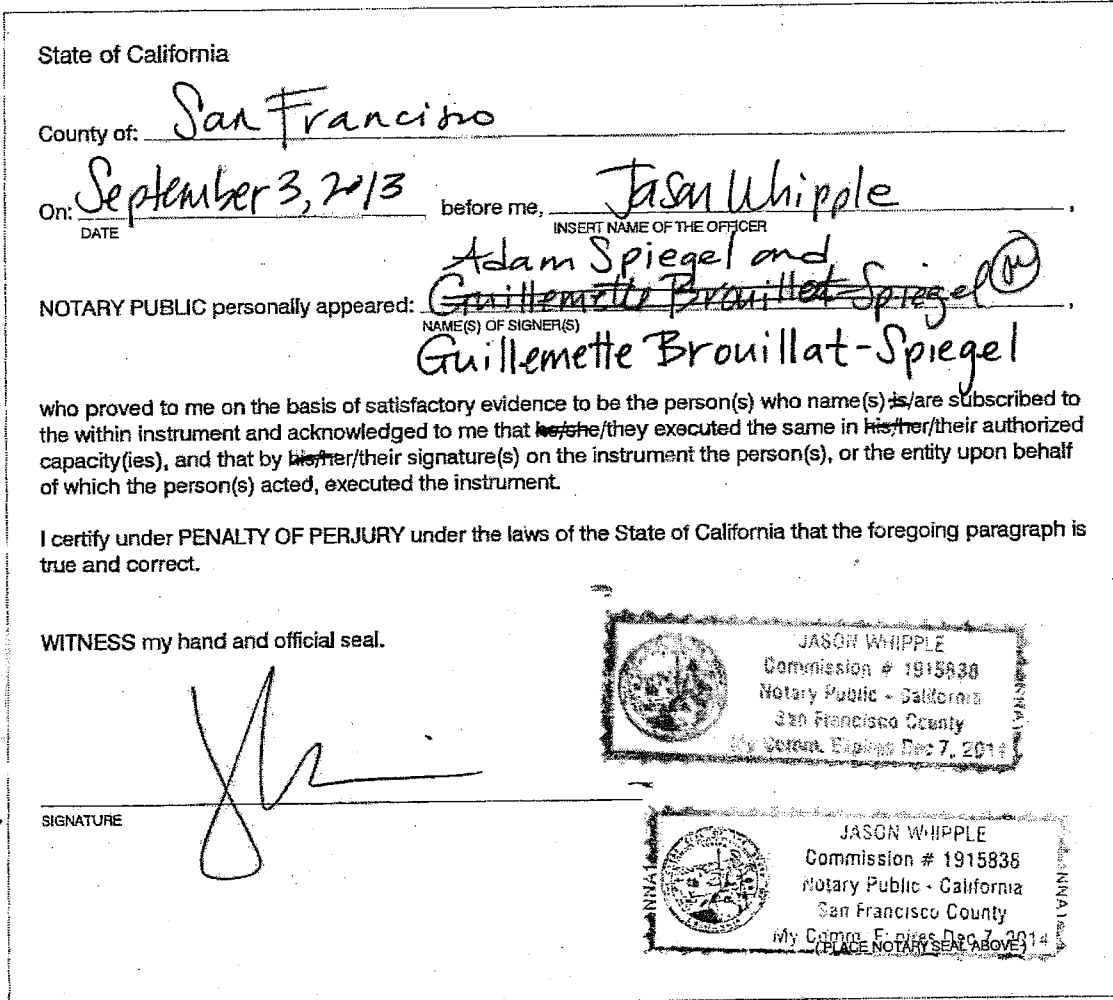 State of California
County of: San Francisco
On: September 3, 2013 before me, Jason Whipple,
DATE
INSERT NAME OF THE OFFICER
Adam Spiegel and
NOTARY PUBLIC personally appeared: Guillemette Brouillet-Spiegel,
NAME(S) OF SIGNER(S)
Guillemette Brouillat-Spiegel
who proved to me on the basis of satisfactory evidence to be the person(s) who name(s) is/are subscribed to
the within instrument and acknowledged to me that he/she/they executed the same in his/her/their authorized
capacity(ies), and that by his/her/their signature(s) on the instrument the person(s), or the entity upon behalf
of which the person(s) acted, executed the instrument.
I certify under PENALTY OF PERJURY under the laws of the State of California that the foregoing paragraph is
true and correct.
WITNESS my hand and official seal.
JASON WHIPPLE
Commission # 1915838
Notary Public - California
San Francisco County
My Comm. Expires Dec 7, 2014
NNA1
SIGNATURE
JASON WHIPPLE
Commission # 1915838
Notary Public - California
San Francisco County
My Comm. Expires Dec 7, 2014
(PLACE NOTARY SEAL ABOVE)
NNA1
NNA1